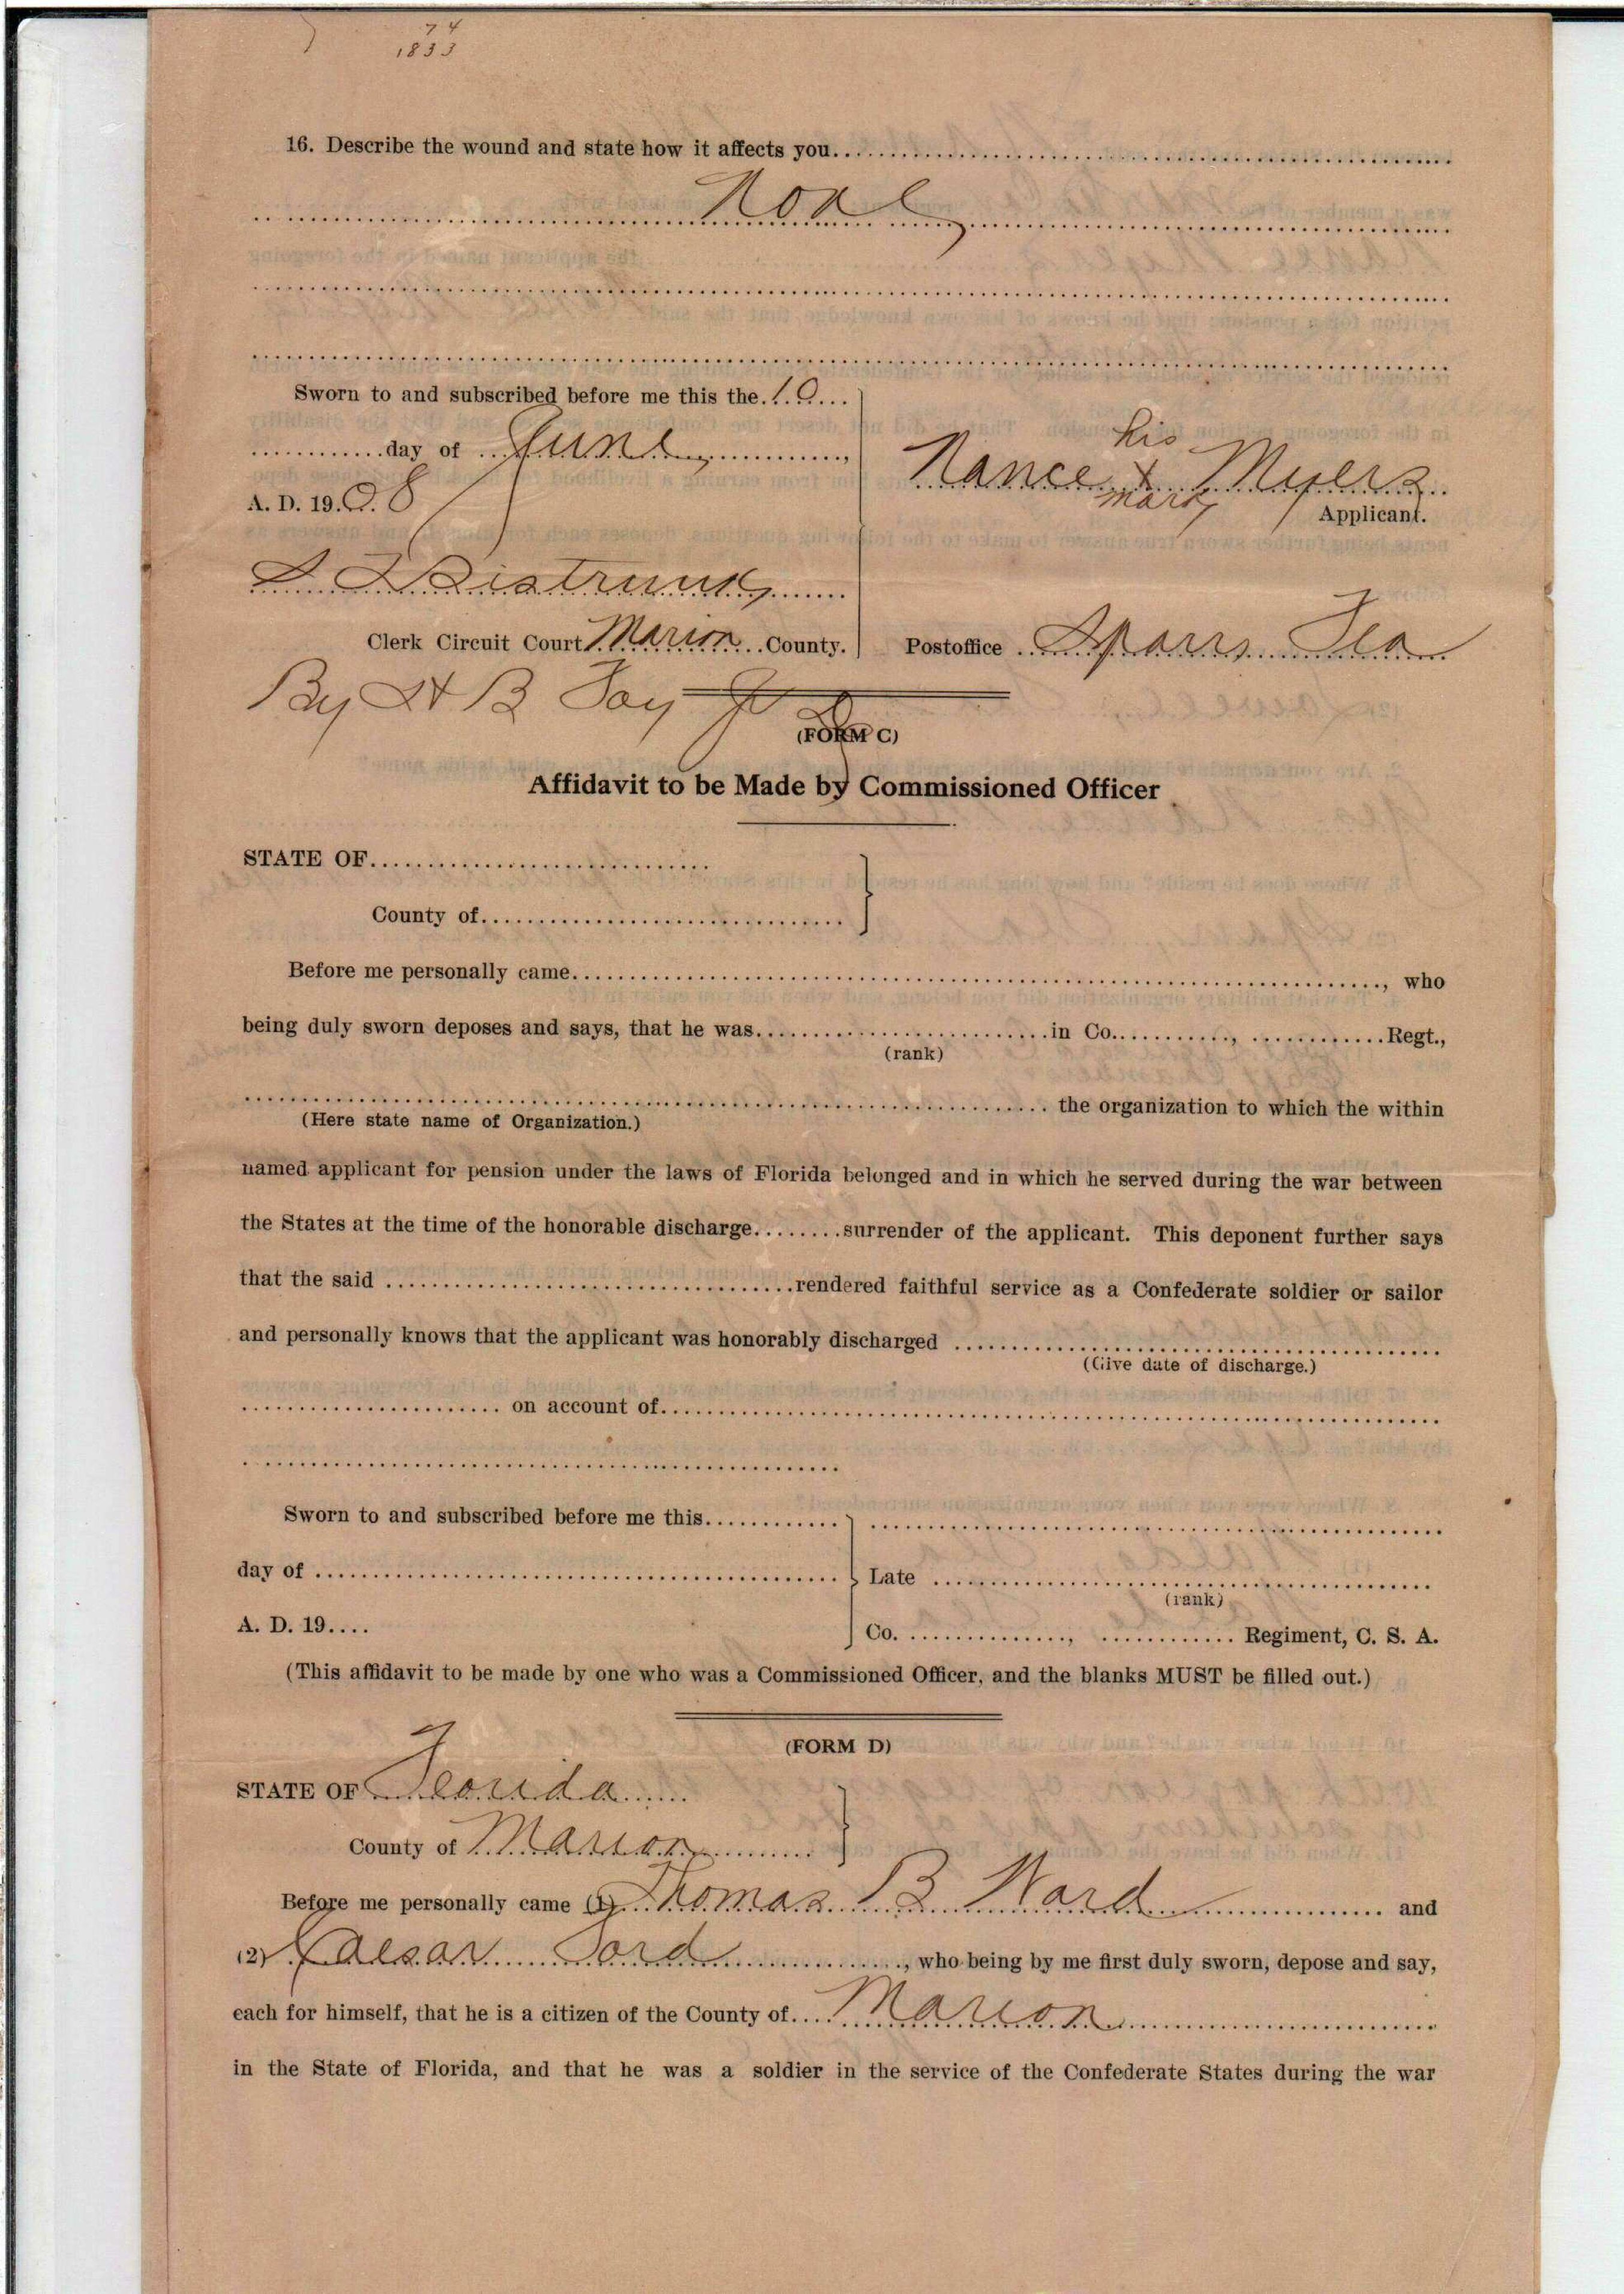 74
1833
16. Describe the wound and state how it affects you
None
Sworn to and subscribed before me this the 10
day of June
A. D. 1908
his
Nance x Myers
mark
Applicant.
Sistrunk
Clerk Circuit Court Marion County.
Postoffice Sparrs Fla
By H B Foy
(FORM C)
Affidavit to be Made by Commissioned Officer
STATE OF
County of
Before me personally came , who
being duly sworn deposes and says, that he was in Co. , Regt.,
(rank)
the organization to which the within
(Here state name of Organization.)
named applicant for pension under the laws of Florida belonged and in which he served during the war between
the States at the time of the honorable discharge surrender of the applicant. This deponent further says
that the said rendered faithful service as a Confederate soldier or sailor
and personally knows that the applicant was honorably discharged
(Give date of discharge.)
on account of
Sworn to and subscribed before me this
day of
Late
(rank)
A. D. 19
Co. , Regiment, C. S. A.
(This affidavit to be made by one who was a Commissioned Officer, and the blanks MUST be filled out.)
(FORM D)
STATE OF Florida
County of Marion
Before me personally came (1) Thomas B Ward and
(2) Caesar Ford , who being by me first duly sworn, depose and say,
each for himself, that he is a citizen of the County of Marion
in the State of Florida, and that he was a soldier in the service of the Confederate States during the war